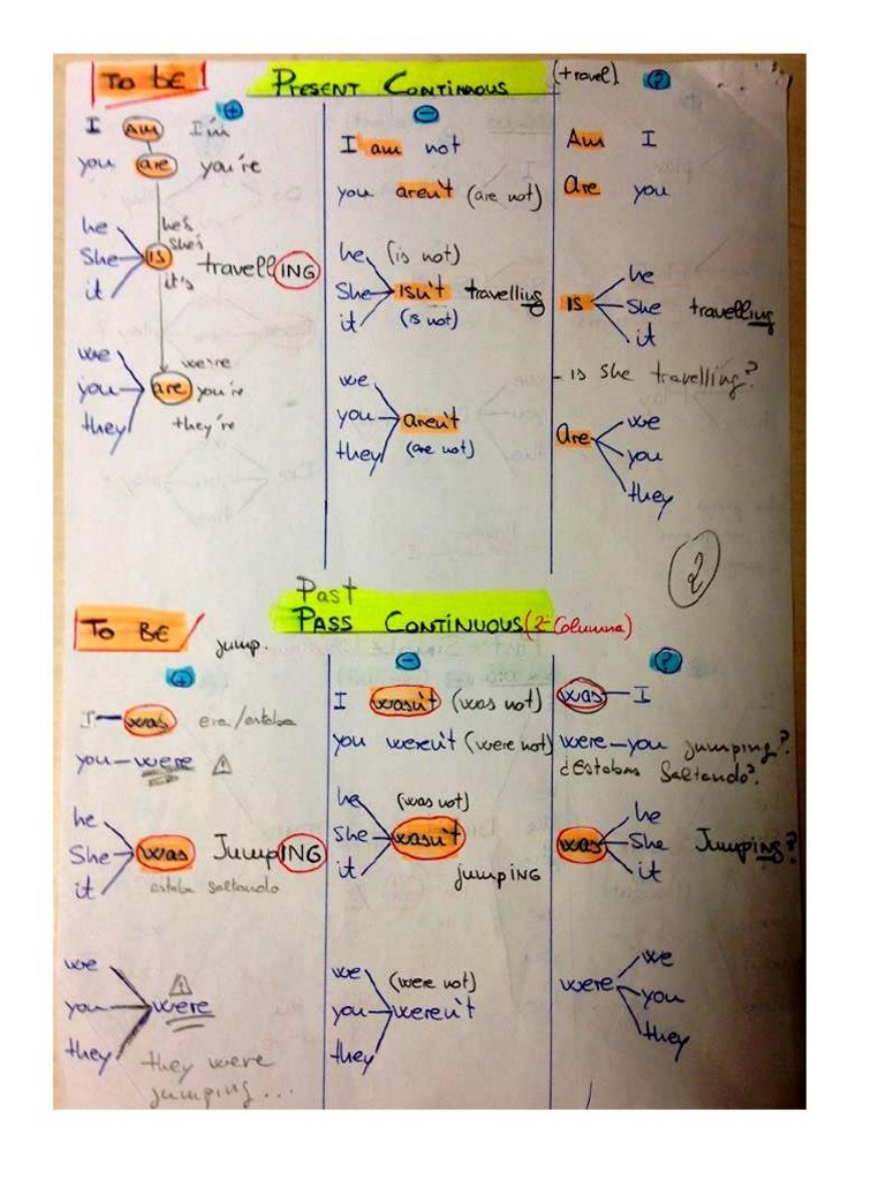 TO BE
PRESENT CONTINUOUS
(travel)
?
+
I AM I'm
you are you're
he
She
it
IS
he's
she's
it's
travellING
we
you
they
are
we're
you're
they're
-
I am not
you aren't (are not)
he
She
it
(is not)
isn't travelling
(is not)
we
you
they
aren't
(are not)
Am I
Are you
IS
he
She
it
travelling
- is she travelling?
Are
we
you
they
2
Past
TO BE
PASS CONTINUOUS (2ª Columna)
jump.
+
I was era/estaba
you were ⚠
he
She
it
was JumpING
estaba saltando
we
you
they
⚠
were
they were
jumping...
-
I wasn't (was not)
you weren't (were not)
he
She
it
(was not)
wasn't
jumpING
we
you
they
(were not)
weren't
?
was I
were you jumping?
¿Estabas Saltando?
was
he
She
it
Jumping?
were
we
you
they